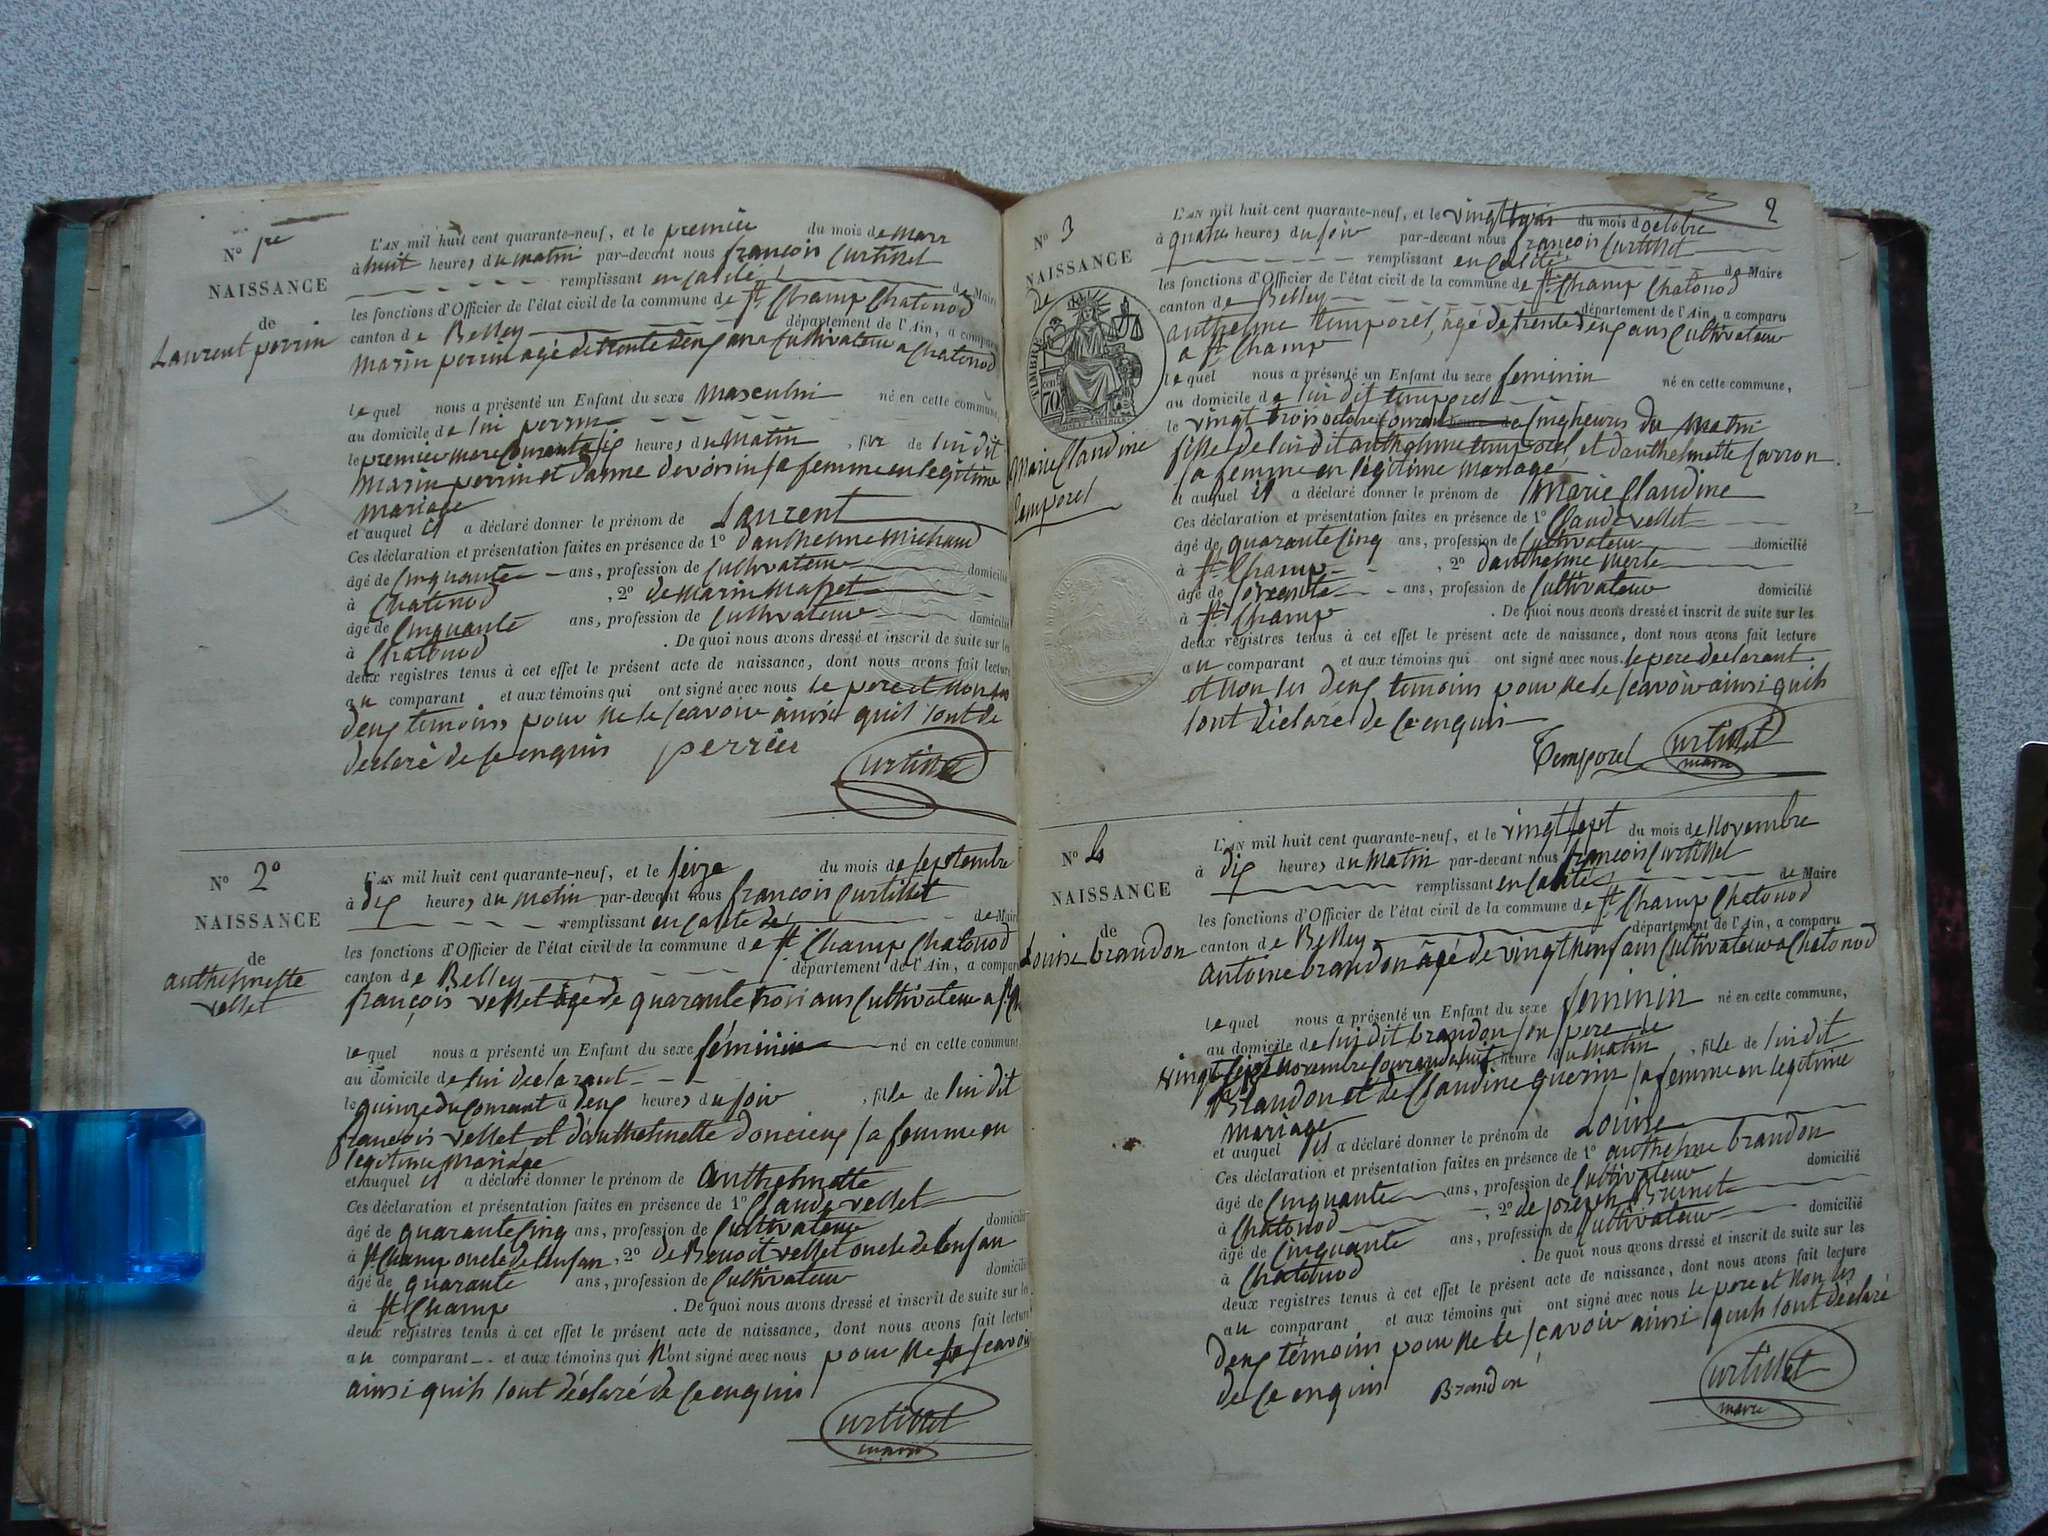 N° 1er
NAISSANCE
de
Laurent perrin
L'AN mil huit cent quarante-neuf, et le premier du mois de mars
à huit heures du matin par-devant nous françois Curtillet
remplissant en calité de Maire
les fonctions d'Officier de l'état civil de la commune de St. Champ Chatonod
canton de Belley département de l'Ain, a comparu
Marin perrin agé de trente deux ans Cultivateur a Chatonod
lequel nous a présenté un Enfant du sexe Masculin né en cette commune,
au domicile de lui perrin
le premier mars Courant a six heures du Matin, fils de lui dit
Marin perrin et danne devoisin sa femme en legitime
mariage
et auquel il a déclaré donner le prénom de Laurent
Ces déclaration et présentation faites en présence de 1° dauthelme Michaud
âgé de Cinquante ans, profession de Cultivateur domicilié
à Chatonod, 2° de Marin Masset
âgé de Cinquante ans, profession de Cultivateur domicilié
à Chatonod . De quoi nous avons dressé et inscrit de suite sur les
deux registres tenus à cet effet le présent acte de naissance, dont nous avons fait lecture
au comparant et aux témoins qui ont signé avec nous le pere et non les
deux temoins pour ne le scavoir ainsi quil sont de
declaré de ce enquis perrin
Curtillet
N° 2°
NAISSANCE
de
anthelmette
vellet
L'AN mil huit cent quarante-neuf, et le seize du mois de septembre
à dix heures du matin par-devant nous françois Curtillet
remplissant en calité de de Maire
les fonctions d'Officier de l'état civil de la commune de St. Champ Chatonod
canton de Belley département de l'Ain, a comparu
françois vellet âgé de quarante trois ans Cultivateur a St. Ch
lequel nous a présenté un Enfant du sexe féminin né en cette commune,
au domicile de lui declarant
le quinze du Courant a deux heures du soir, fille de lui dit
francois vellet et danthelmette doncieux sa femme en
legitime mariage
et auquel il a déclaré donner le prénom de anthelmette
Ces déclaration et présentation faites en présence de 1° Claude vellet
âgé de quarante Cinq ans, profession de Cultivateur domicilié
à St. Champ oncle de lenfan, 2° de Benoit vellet oncle de lenfan
âgé de quarante ans, profession de Cultivateur domicilié
à St. Champ . De quoi nous avons dressé et inscrit de suite sur les
deux registres tenus à cet effet le présent acte de naissance, dont nous avons fait lecture
au comparant et aux témoins qui n'ont signé avec nous pour ne le scavoir
ainsi quils sont déclaré de ce enquis
Curtillet
maire
2
N° 3
NAISSANCE
de
TIMBRE
CEN 70
Marie Claudine
temporel
L'AN mil huit cent quarante-neuf, et le vingt trois du mois doctobre
à quatre heures du soir par-devant nous françois Curtillet
remplissant en calité de Maire
les fonctions d'Officier de l'état civil de la commune de St. Champ Chatonod
canton de Belley département de l'Ain, a comparu
anthelme temporel, âgé de trente deux ans Cultivateur
a St. Champ
lequel nous a présenté un Enfant du sexe féminin né en cette commune,
au domicile de lui dit temporel
le vingt trois octobre Courant a Cinq heures du Matin
fille de lui dit anthelme temporel, et danthelmette Carron
sa femme en legitime mariage
et auquel il a déclaré donner le prénom de Marie Claudine
Ces déclaration et présentation faites en présence de 1° Claude vellet
âgé de quarante Cinq ans, profession de Cultivateur domicilié
à St. Champ, 2° danthelme Merle
âgé de ans, profession de Cultivateur domicilié
à St. Champ . De quoi nous avons dressé et inscrit de suite sur les
deux registres tenus à cet effet le présent acte de naissance, dont nous avons fait lecture
au comparant et aux témoins qui ont signé avec nous le pere declarant
et non les deux temoins pour ne le scavoir ainsi quils
sont déclaré de ce enquis
Temporel Curtillet
maire
N° 4
NAISSANCE
de
Louise brandon
L'AN mil huit cent quarante-neuf, et le vingt sept du mois de Novembre
à dix heures du Matin par-devant nous françois Curtillet
remplissant en calité de Maire
les fonctions d'Officier de l'état civil de la commune de St. Champ Chatonod
canton de Belley département de l'Ain, a comparu
antoine brandon âgé de vingt neuf ans Cultivateur a Chatonod
lequel nous a présenté un Enfant du sexe féminin né en cette commune,
au domicile de lui dit brandon son pere le
vingt sept novembre Courant a huit heure du matin, fille de lui dit
Brandon et de Claudine guerin sa femme en legitime
mariage
et auquel il a déclaré donner le prénom de Louise
Ces déclaration et présentation faites en présence de 1° anthelme brandon
âgé de Cinquante ans, profession de Cultivateur domicilié
à Chatonod, 2° de joseph Brunet
âgé de Cinquante ans, profession de Cultivateur domicilié
à Chatonod . De quoi nous avons dressé et inscrit de suite sur les
deux registres tenus à cet effet le présent acte de naissance, dont nous avons fait lecture
au comparant et aux témoins qui ont signé avec nous le pere et non les
deux témoins pour ne le scavoir ainsi quils sont déclaré
de ce enquis Brandon
Curtillet
maire